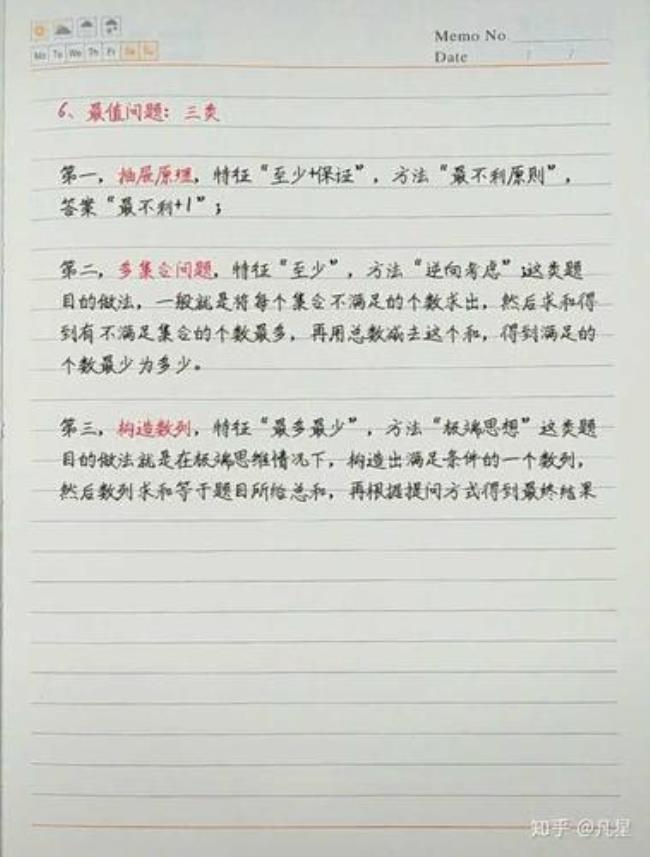 Memo No
Mo Tu We Th Fr Sa Su
Date / /
6、最值问题：三类
第一，抽屉原理，特征“至少+保证”，方法“最不利原则”，
答案“最不利+1”；
第二，多集合问题，特征“至少”，方法“逆向考虑”；这类题
目的做法，一般就是将每个集合不满足的个数求出，然后求和得
到有不满足集合的个数最多，再用总数减去这个和，得到满足的
个数最少为多少。
第三，构造数列，特征“最多最少”，方法“极端思想”这类题
目的做法就是在极端思维情况下，构造出满足条件的一个数列，
然后数列求和等于题目所给总和，再根据提问方式得到最终结果
知乎 @凡星